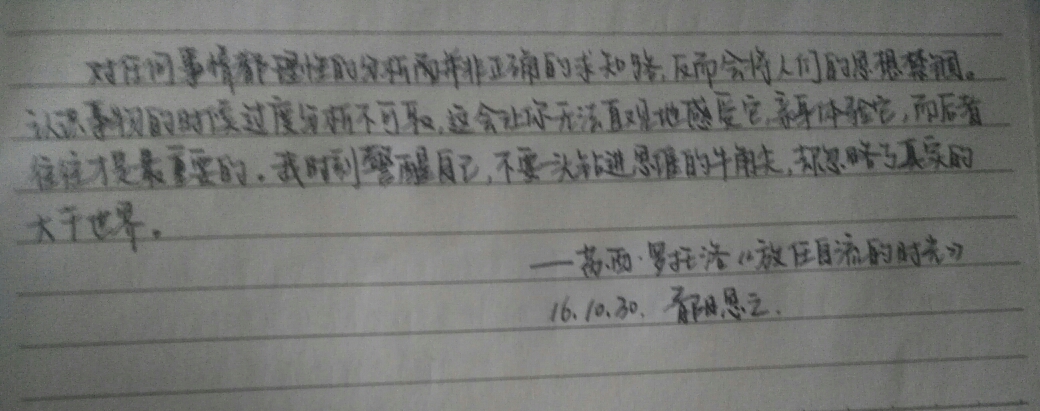 对任何事情都理性的分析而并非正确的求知路,反而会将人们的思想禁锢。
认识事物的时候过度分析不可取,这会让你无法直观地感受它,亲身体验它,而后者
往往才是最重要的。我时刻警醒自己,不要一头钻进思维的牛角尖,却忽略了真实的
大千世界。
——茜·罗托洛《放任自流的时光》
16.10.30.